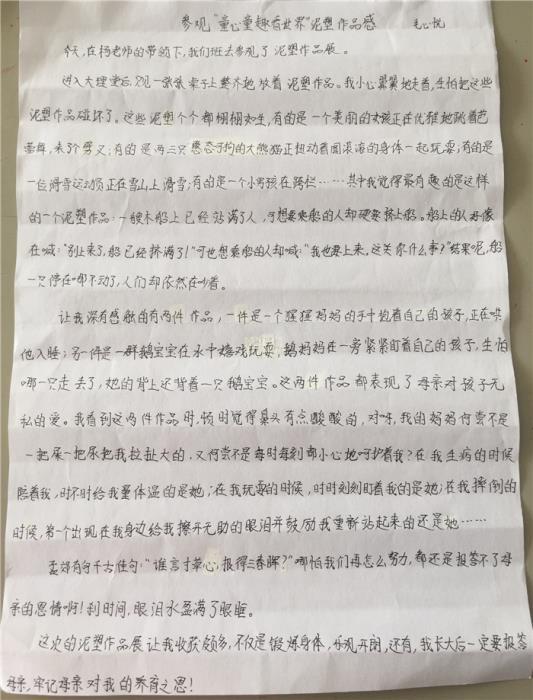 参观"童心童趣看世界"泥塑作品感 毛心悦
今天,在杨老师的带领下,我们班去参观了泥塑作品展。
进入大理堂后,只见一张张桌子上整齐地放着泥塑作品。我小心翼翼地走着,生怕把这些
泥塑作品碰坏了。这些泥塑个个都栩栩如生,有的是一个美丽的女孩正在优雅地跳着芭
蕾舞,来了个劈叉;有的是两三只憨态可掬的大熊猫正扭动着圆滚滚的身体一起玩耍;有的是
一位滑雪运动员正在雪山上滑雪;有的是一个小男孩在跨栏……其中我觉得最有趣的是这样
的一个泥塑作品:一艘木船上已经站满了人,可想要乘船的人却硬要挤上船。船上的人好像
在喊:"别上来了,船已经挤满了!"可也想乘船的人却喊:"我也要上来,这关你什么事?"结果呢,船
一只停在哪不动了,人们却依然在吵着。
让我深有感触的有两件作品,一件是一个猩猩妈妈的手中抱着自己的孩子,正在哄
他入睡;另一件是一群鹅宝宝在水中嬉戏玩耍,鹅妈妈在一旁紧紧盯着自己的孩子,生怕
哪一只走去了,她的背上还背着一只鹅宝宝。这两件作品都表现了母亲对孩子无
私的爱。我看到这两件作品时,顿时觉得鼻头有点酸酸的,对呀,我的妈妈何尝不是
一把屎一把尿把我拉扯大的,又何尝不是每时每刻都小心地呵护着我?在我生病的时候
陪着我,时不时给我量体温的是她;在我玩耍的时候,时时刻刻盯着我的是她;在我摔倒的
时候,第一个出现在我身边给我擦干无助的眼泪并鼓励我重新站起来的还是她……
孟郊有句千古佳句:"谁言寸草心,报得三春晖?"哪怕我们再怎么努力,都还是报答不了母
亲的恩情啊!刹时间,眼泪水盈满了眼眶。
这次的泥塑作品展让我收获颇多,不仅是锻炼身体,乐观开朗,还有,我长大后一定要报答
母亲,牢记母亲对我的养育之恩!